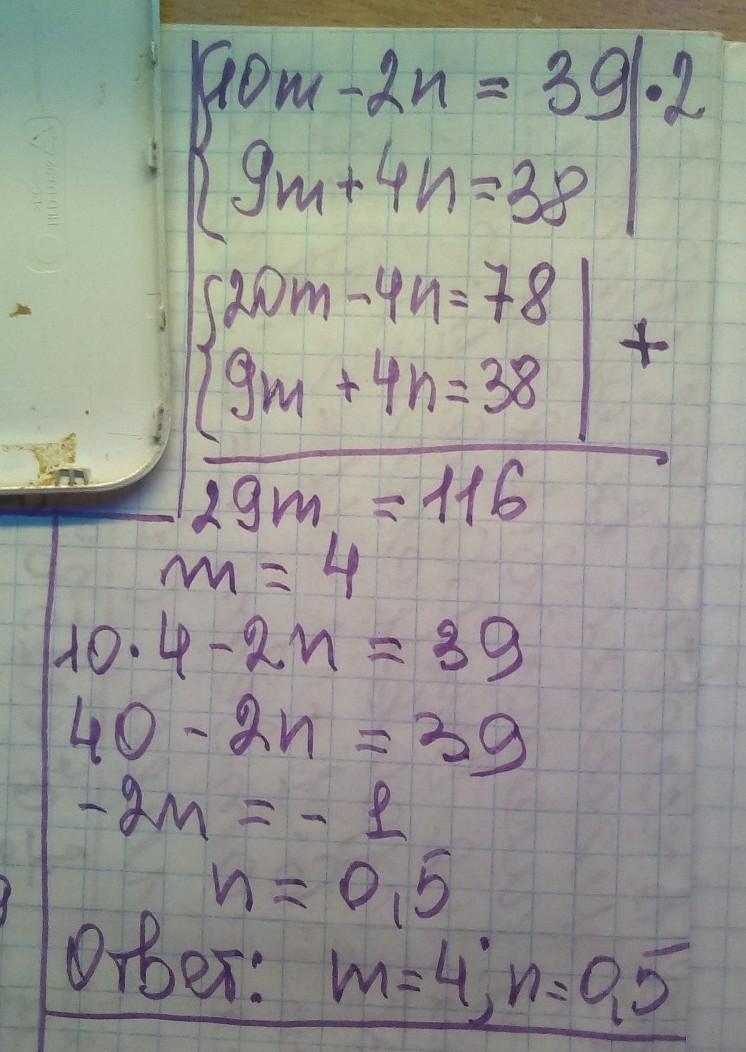 {10m - 2n = 39 | · 2
{9m + 4n = 38 |
{20m - 4n = 78 | +
{9m + 4n = 38 |
29m = 116
m = 4
10 · 4 - 2n = 39
40 - 2n = 39
-2n = - 1
n = 0,5
Ответ: m = 4; n = 0,5